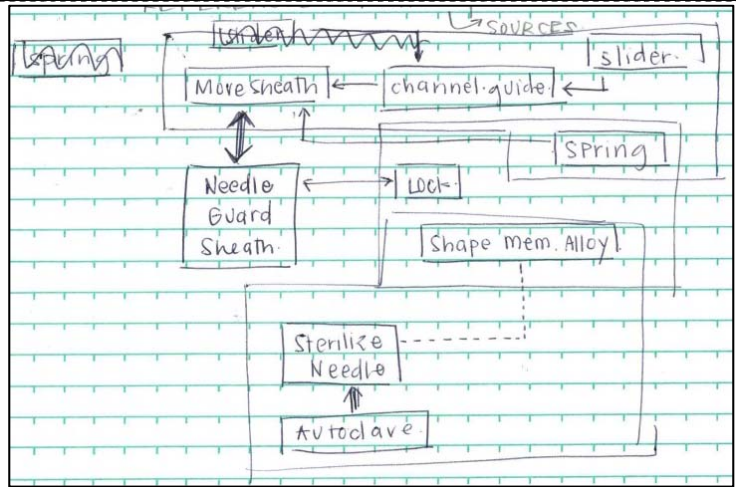 SOURCES
spring
slider.
Move sheath
channel.guide.
spring
Needle
Guard
Sheath.
LOCK.
Shape mem. Alloy
Sterilize
Needle
Autoclave.